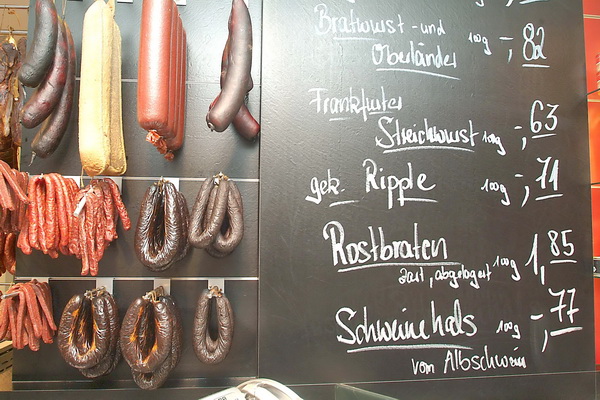 Bratwurst-und
Oberländer 100g -,82
Frankfurter
Streichwurst 100g -,63
gek. Ripple 100g -,71
Rostbraten 100g 1,85
zart, abgelagert
Schweinehals 100g -,77
vom Albschwein